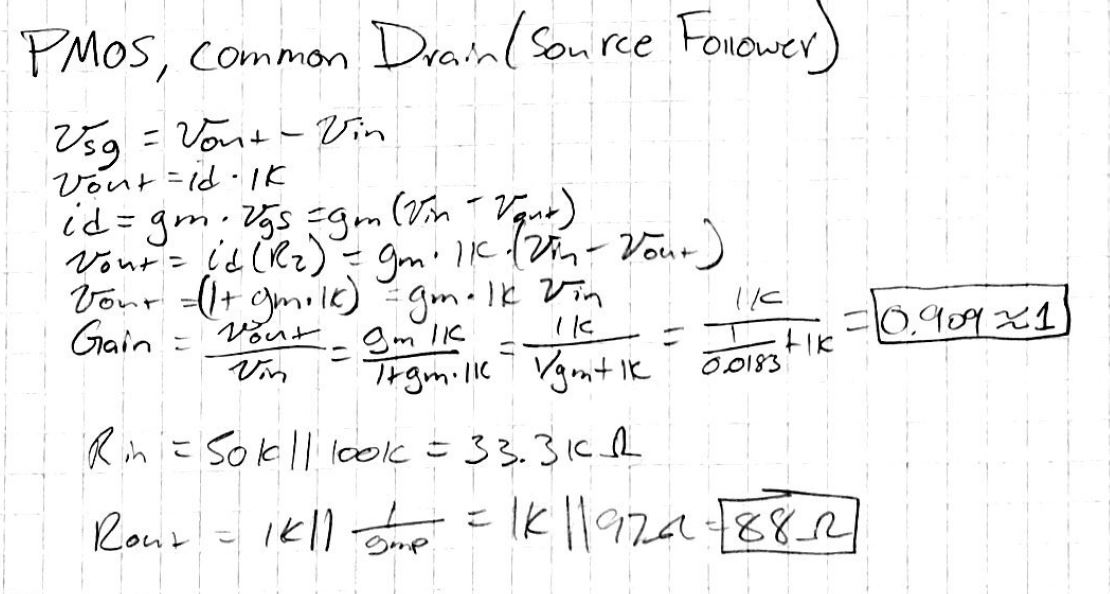 PMOS, common Drain (Source Follower)
Vsg = Vout - Vin
Vout = id · 1K
id = gm · Vgs = gm (Vin - Vout)
Vout = id (R2) = gm · 1K · (Vin - Vout)
Vout = (1 + gm · 1K) = gm · 1K Vin
Gain = Vout / Vin = gm 1K / 1 + gm · 1K = 1K / 1/gm + 1K = 1K / 1/0.0183 + 1K = 0.909 ≈ 1
Rin = 50K || 100K = 33.3K Ω
Rout = 1K || 1/gmp = 1K || 97Ω = 88 Ω